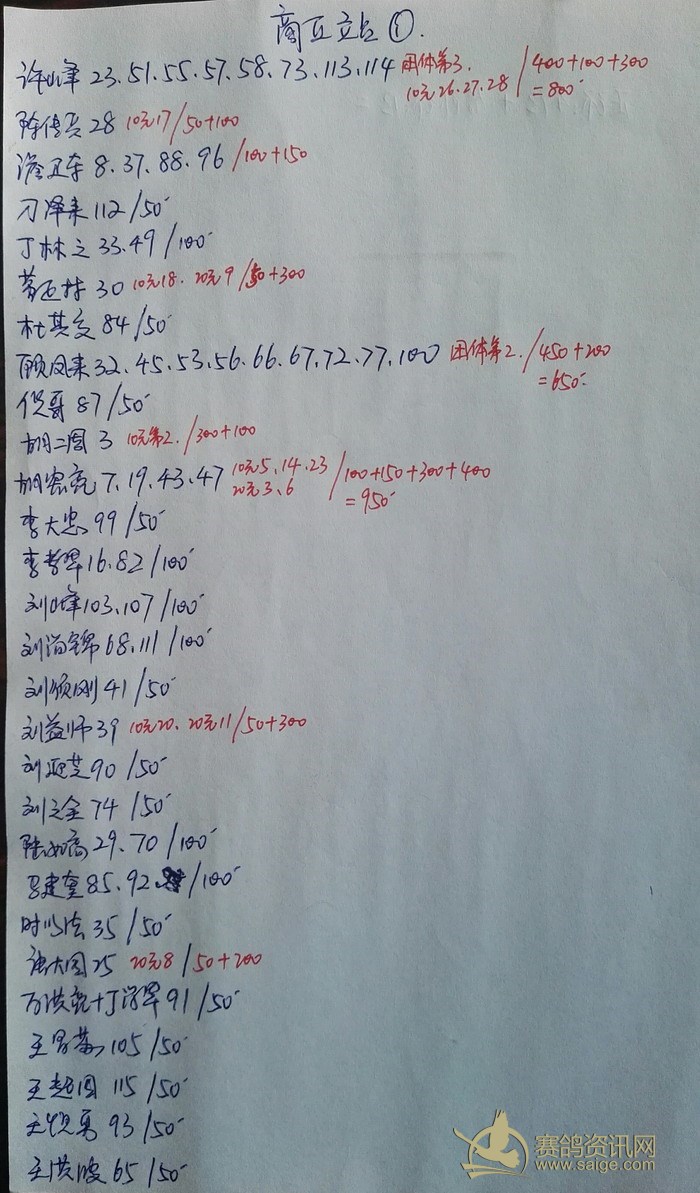 商互立点①.
许峰 23.51.55.57.58.73.113.114 团体第3. 10元26.27.28 / 400+100+300 =800
陈传兵 28 10元17/50+100
8.37.88.96 /100+150
刁泽来 112/50
丁林之 33.49/100
30 10元18. 20元9/50+300
杜其 84/50
顾凤来 32.45.53.56.66.67.72.77.100 团体第2./450+200 =650
倪哥 87/50
胡二周 3 10元第2./300+100
胡宏亮 7.19.43.47 10元5.14.23 20元3.6 /100+150+300+400 =950
李大忠 99/50
李 16.82/100
刘峰 103.107/100
刘 锦 68.111/100
刘 刚 41/50
刘益师 39 10元20. 20元11/50+300
刘亚芝 90/50
刘之全 74/50
陆 高 29.70/100
85.92. /100
时 法 35/50
大国 25 20元8/50+200
万洪亮+丁 91/50
王 105/50
王起国 115/50
王 勇 93/50
王洪波 65/50
赛鸽资讯网
www.saige.com